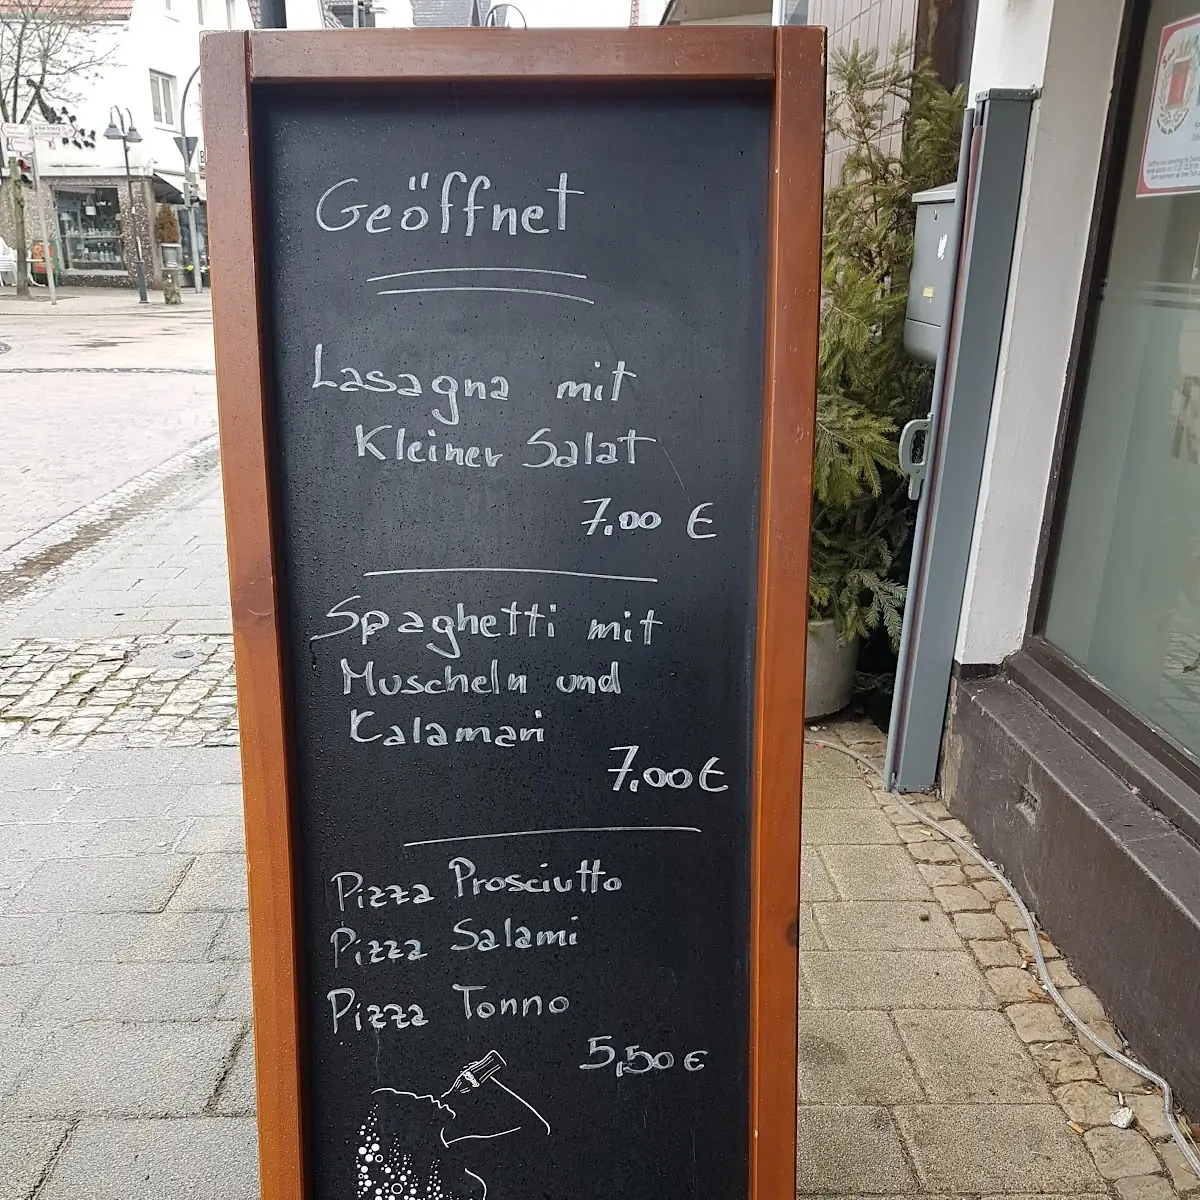 Geöffnet
Lasagna mit
Kleiner Salat
7.00 €
Spaghetti mit
Muscheln und
Calamari
7.00€
Pizza Prosciutto
Pizza Salami
Pizza Tonno
5,50€